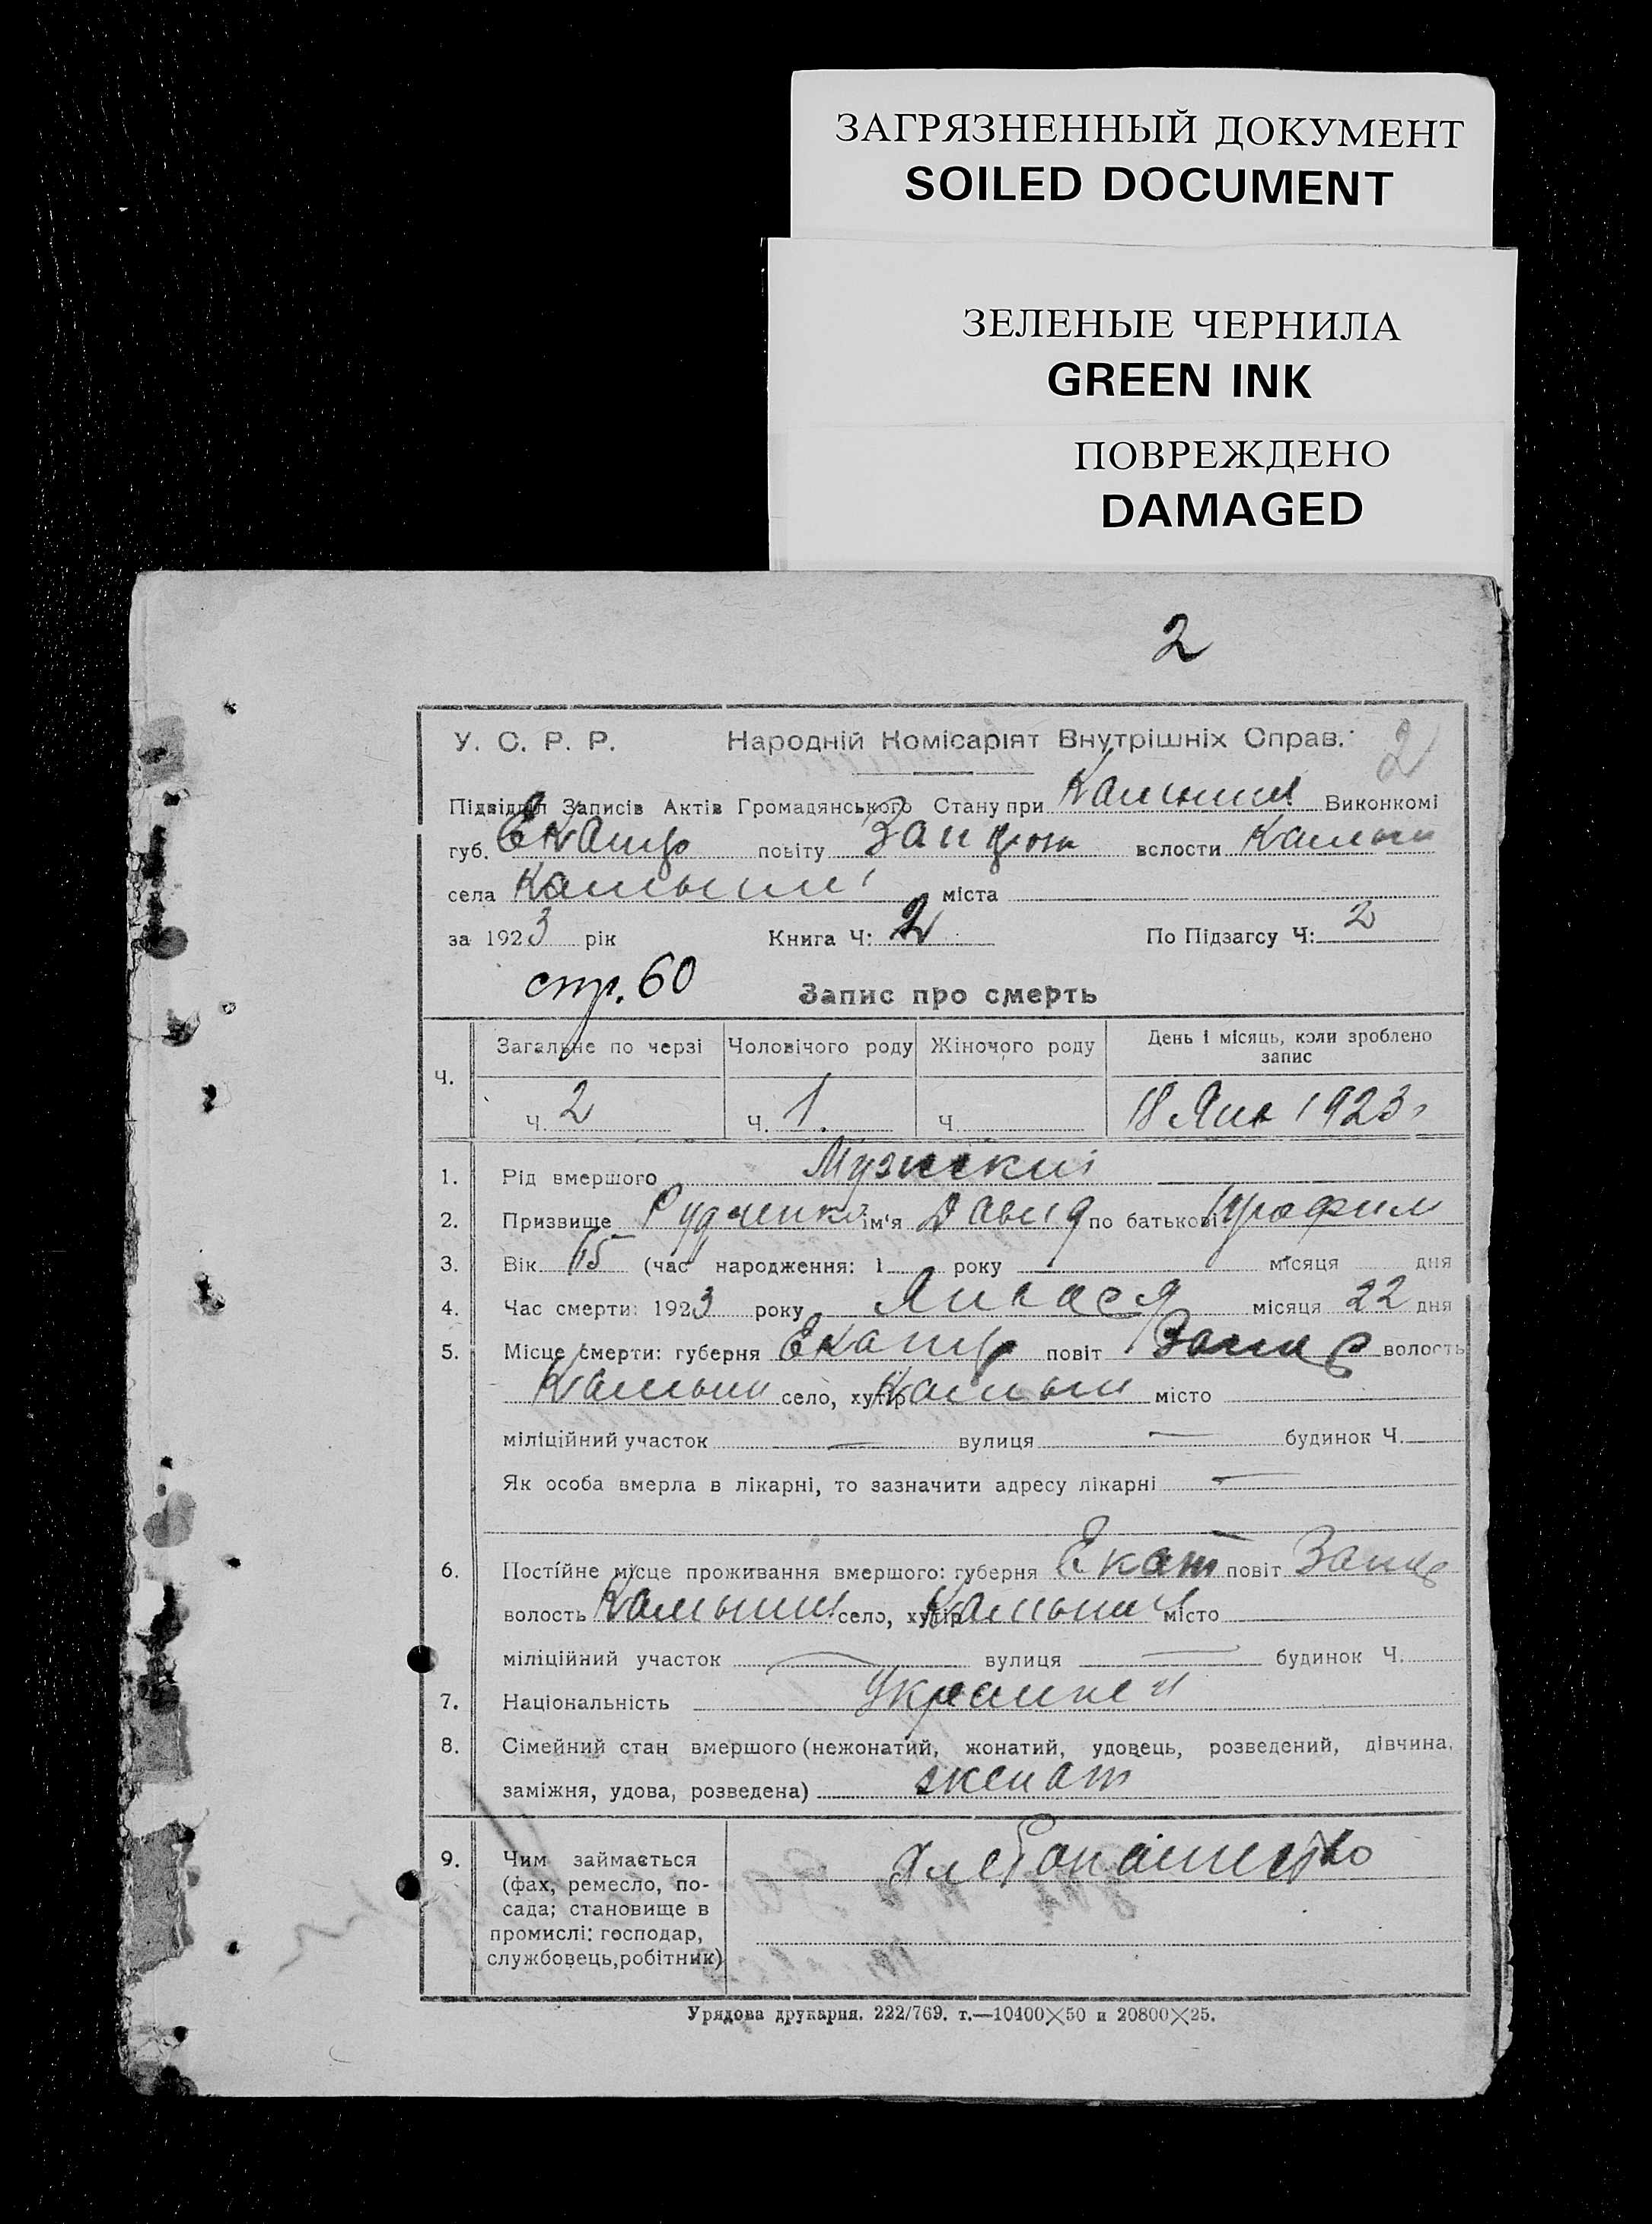 ЗАГРЯЗНЕННЫЙ ДОКУМЕНТ
SOILED DOCUMENT
ЗЕЛЕНЫЕ ЧЕРНИЛА
GREEN INK
ПОВРЕЖДЕНО
DAMAGED
2
У. С. Р. Р. Народній Комісаріят Внутрішніх Справ. 2
Підвідділ Записів Актів Громадянського Стану при Виконкомі
губ. повіту волости
села міста
за 1923 рік Книга Ч: 2 По Підзагсу Ч: 2
стр. 60 Запис про смерть
Ч. Загальне по черзі Чоловічого роду Жіночого роду День і місяць, коли зроблено
запис
Ч. 2 Ч. 1. Ч. 18 Янв 1923 г
1. Рід вмершого Мужский
2. Призвище Рудченко ім'я Давид по батькові Трофим
3. Вік (час народження: 1 року місяця дня
4. Час смерти: 1923 року Января місяця 22 дня
5. Місце смерти: губернія Екатр повіт Запор волость
Камыш село, хутір Камыш місто
міліційний участок — вулиця — будинок Ч.
Як особа вмерла в лікарні, то зазначити адресу лікарні —
6. Постійне місце проживання вмершого: губерня Екат повіт Запор
волость село, хутір місто
міліційний участок — вулиця — будинок Ч.
7. Національність Украинец
8. Сімейний стан вмершого (нежонатий, жонатий, удовець, розведений, дівчина,
заміжня, удова, розведена) женат
9. Чим займається Хлебопашество
(фах, ремесло, по-
сада; становище в
промислі: господар,
службовець, робітник)
Урядова друкарня. 222/769. т.—10400×50 и 20800×25.